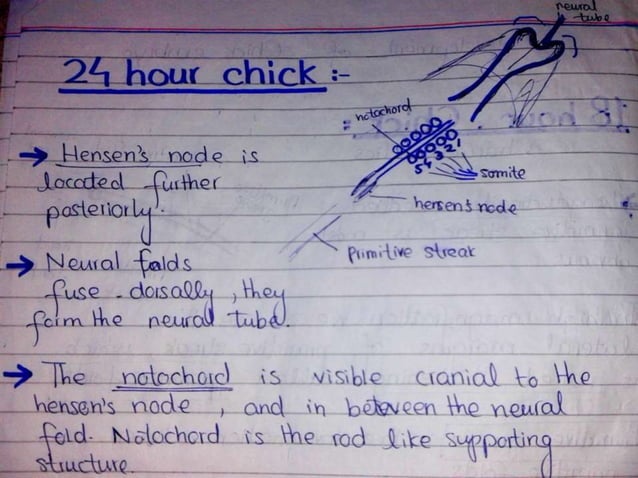 neural
tube
24 hour chick :-
notochord
5 4 3 2 1
somite
hensen's node
Primitive streak
→ Hensen's node is
located further
posteriorly.
→ Neural folds
fuse dorsally, they
form the neural tube.
→ The notochord is visible cranial to the
hensen's node, and in between the neural
fold. Notochord is the rod like supporting
structure.